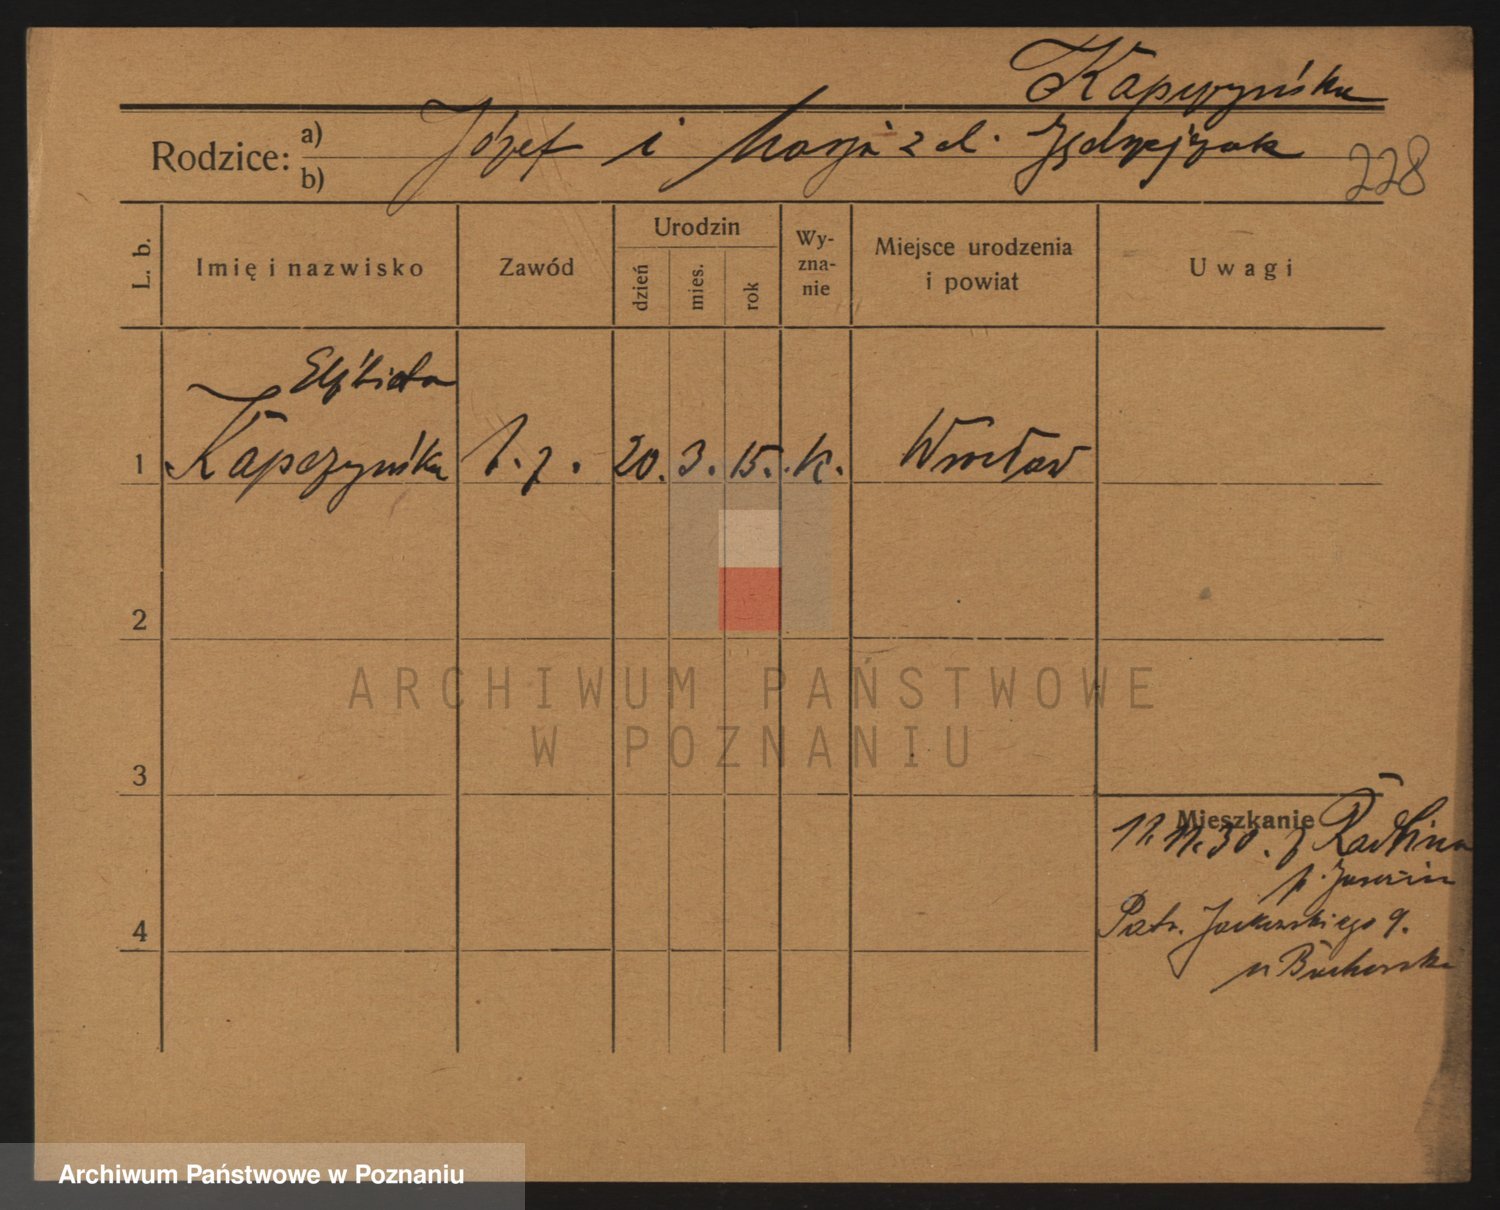 Kapczyńska
Rodzice: a) b) Józef i Marja z d. Jędrzejczak
228
L. b. Imię i nazwisko Zawód Urodzin dzień mies. rok Wy-zna-nie Miejsce urodzenia i powiat Uwagi
Elżbieta
1 Kapczyńska 20. 3. 15. k. Wrocław
2
ARCHIWUM PAŃSTWOWE
W POZNANIU
3
Mieszkanie
11.11.30. z Radlina
p. Jarocin
4 Patr. Jackowskiego 9.
u
Archiwum Państwowe w Poznaniu